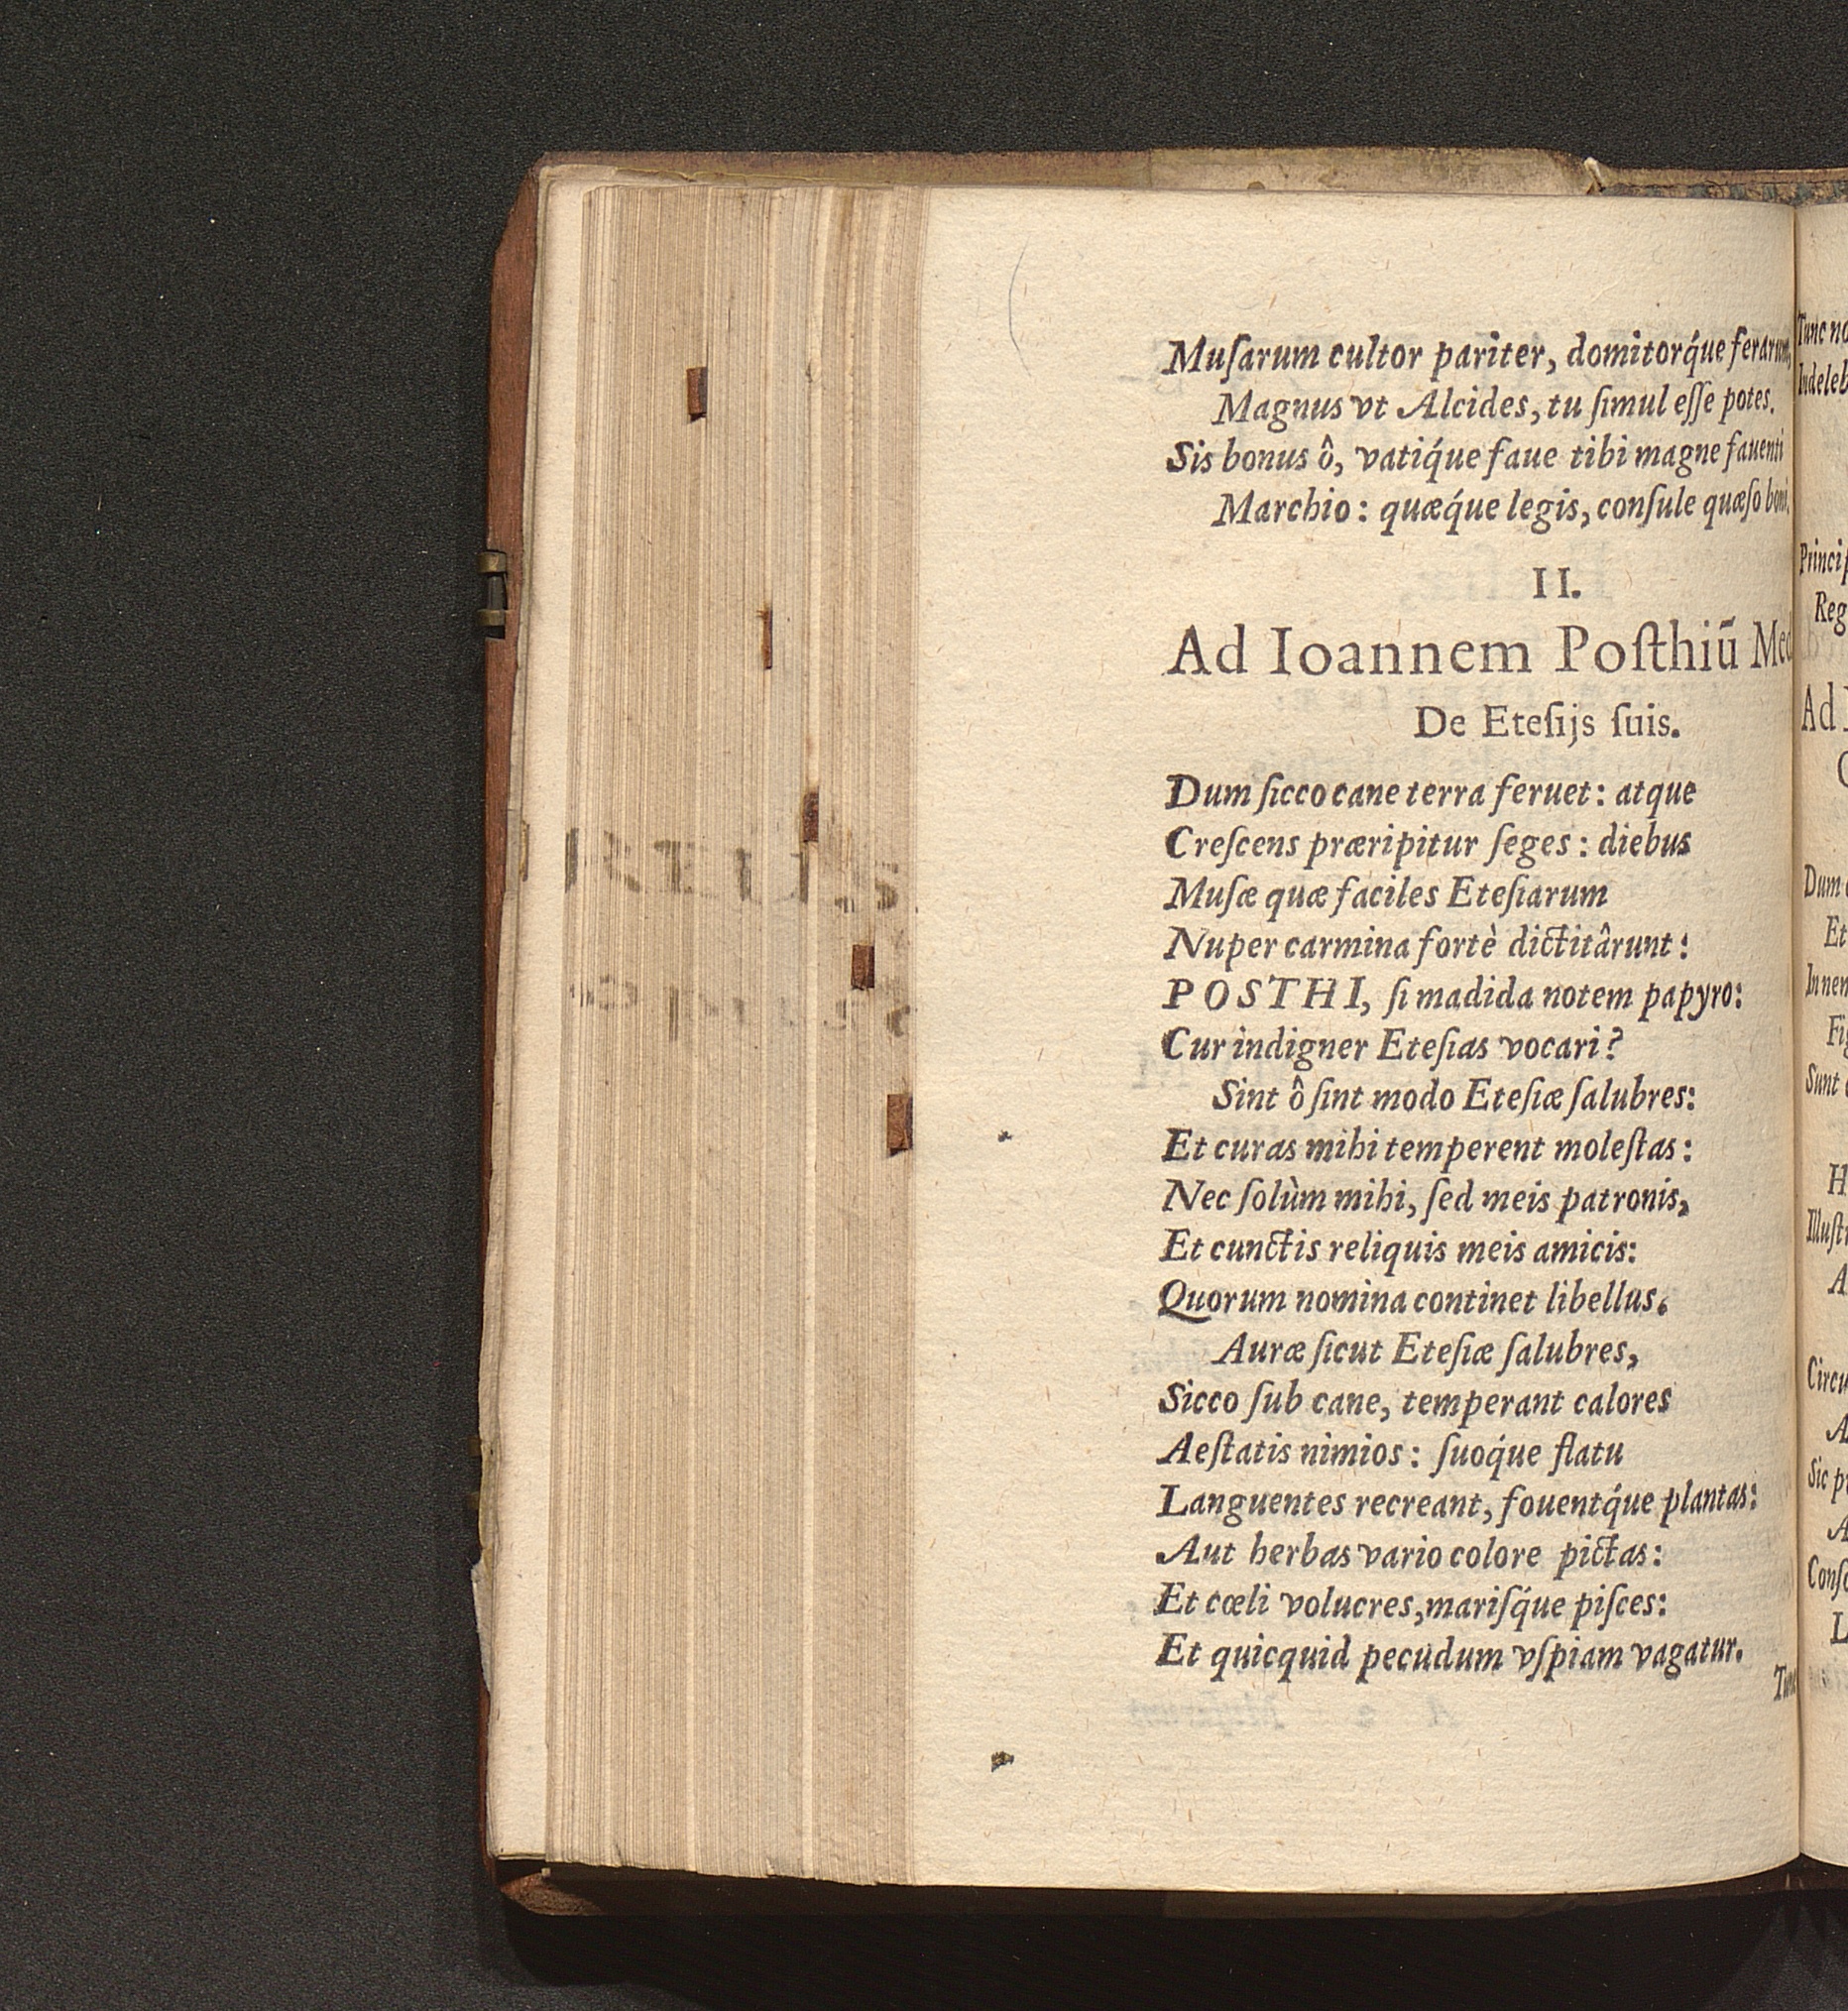 Muſarum cultor pariter, domitorq́ue ferarum,
Magnus vt Alcides, tu ſimul eſſe potes.
Sis bonus ô, vatiq́ue faue tibi magne fauenti
Marchio: quæq́ue legis, conſule quæſo boni.
II.
Ad Ioannem Poſthiũ Med
De Eteſijs ſuis.
Dum ſicco cane terra feruet: atque
Creſcens præripitur ſeges: diebus
Muſæ quæ faciles Eteſiarum
Nuper carmina fortè dictitârunt:
POSTHI, ſi madida notem papyro:
Cur indigner Eteſias vocari?
Sint ô ſint modo Eteſiæ ſalubres:
Et curas mihi temperent moleſtas:
Nec ſolùm mihi, ſed meis patronis,
Et cunctis reliquis meis amicis:
Quorum nomina continet libellus.
Auræ ſicut Eteſiæ ſalubres,
Sicco ſub cane, temperant calores
Aeſtatis nimios: ſuoq́ue flatu
Languentes recreant, fouentq́ue plantas:
Aut herbas vario colore pictas:
Et cœli volucres, mariſq́ue piſces:
Et quicquid pecudum vſpiam vagatur.
Tunc
Tunc no
Indeleb
Princip
Reg
Ad
Dum
Et
Innen
Fig
Sunt
H
Illuſt
A
Circu
A
Sic p
A
Conſ
L